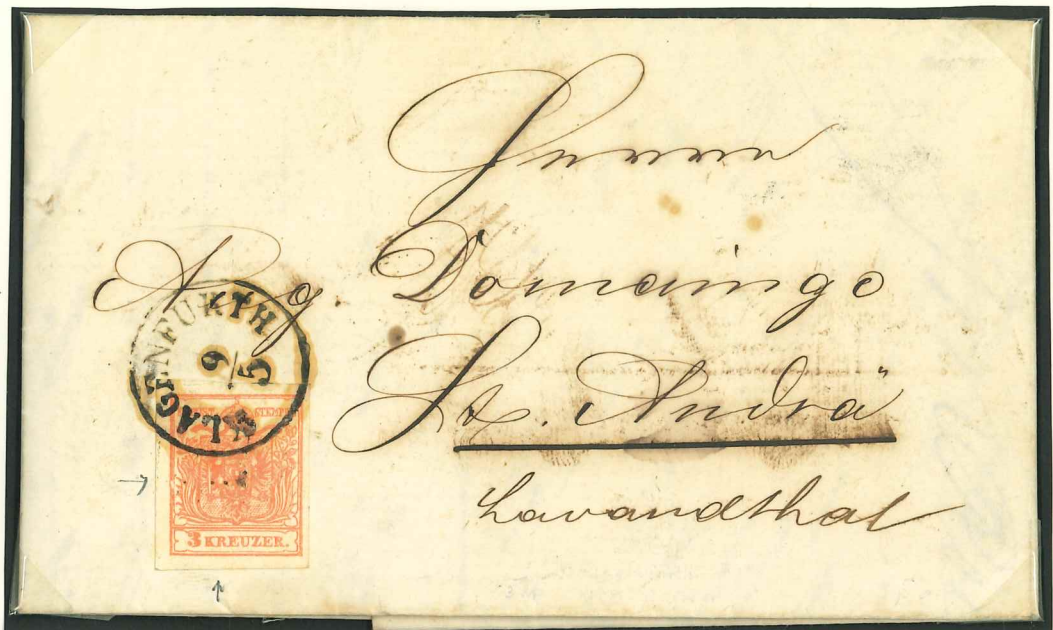 Herrn
P. g. Domainigo
St. Andrä
Lavandthal
KLAGENFURTH
9/5
STEMPEL
3 KREUZER.